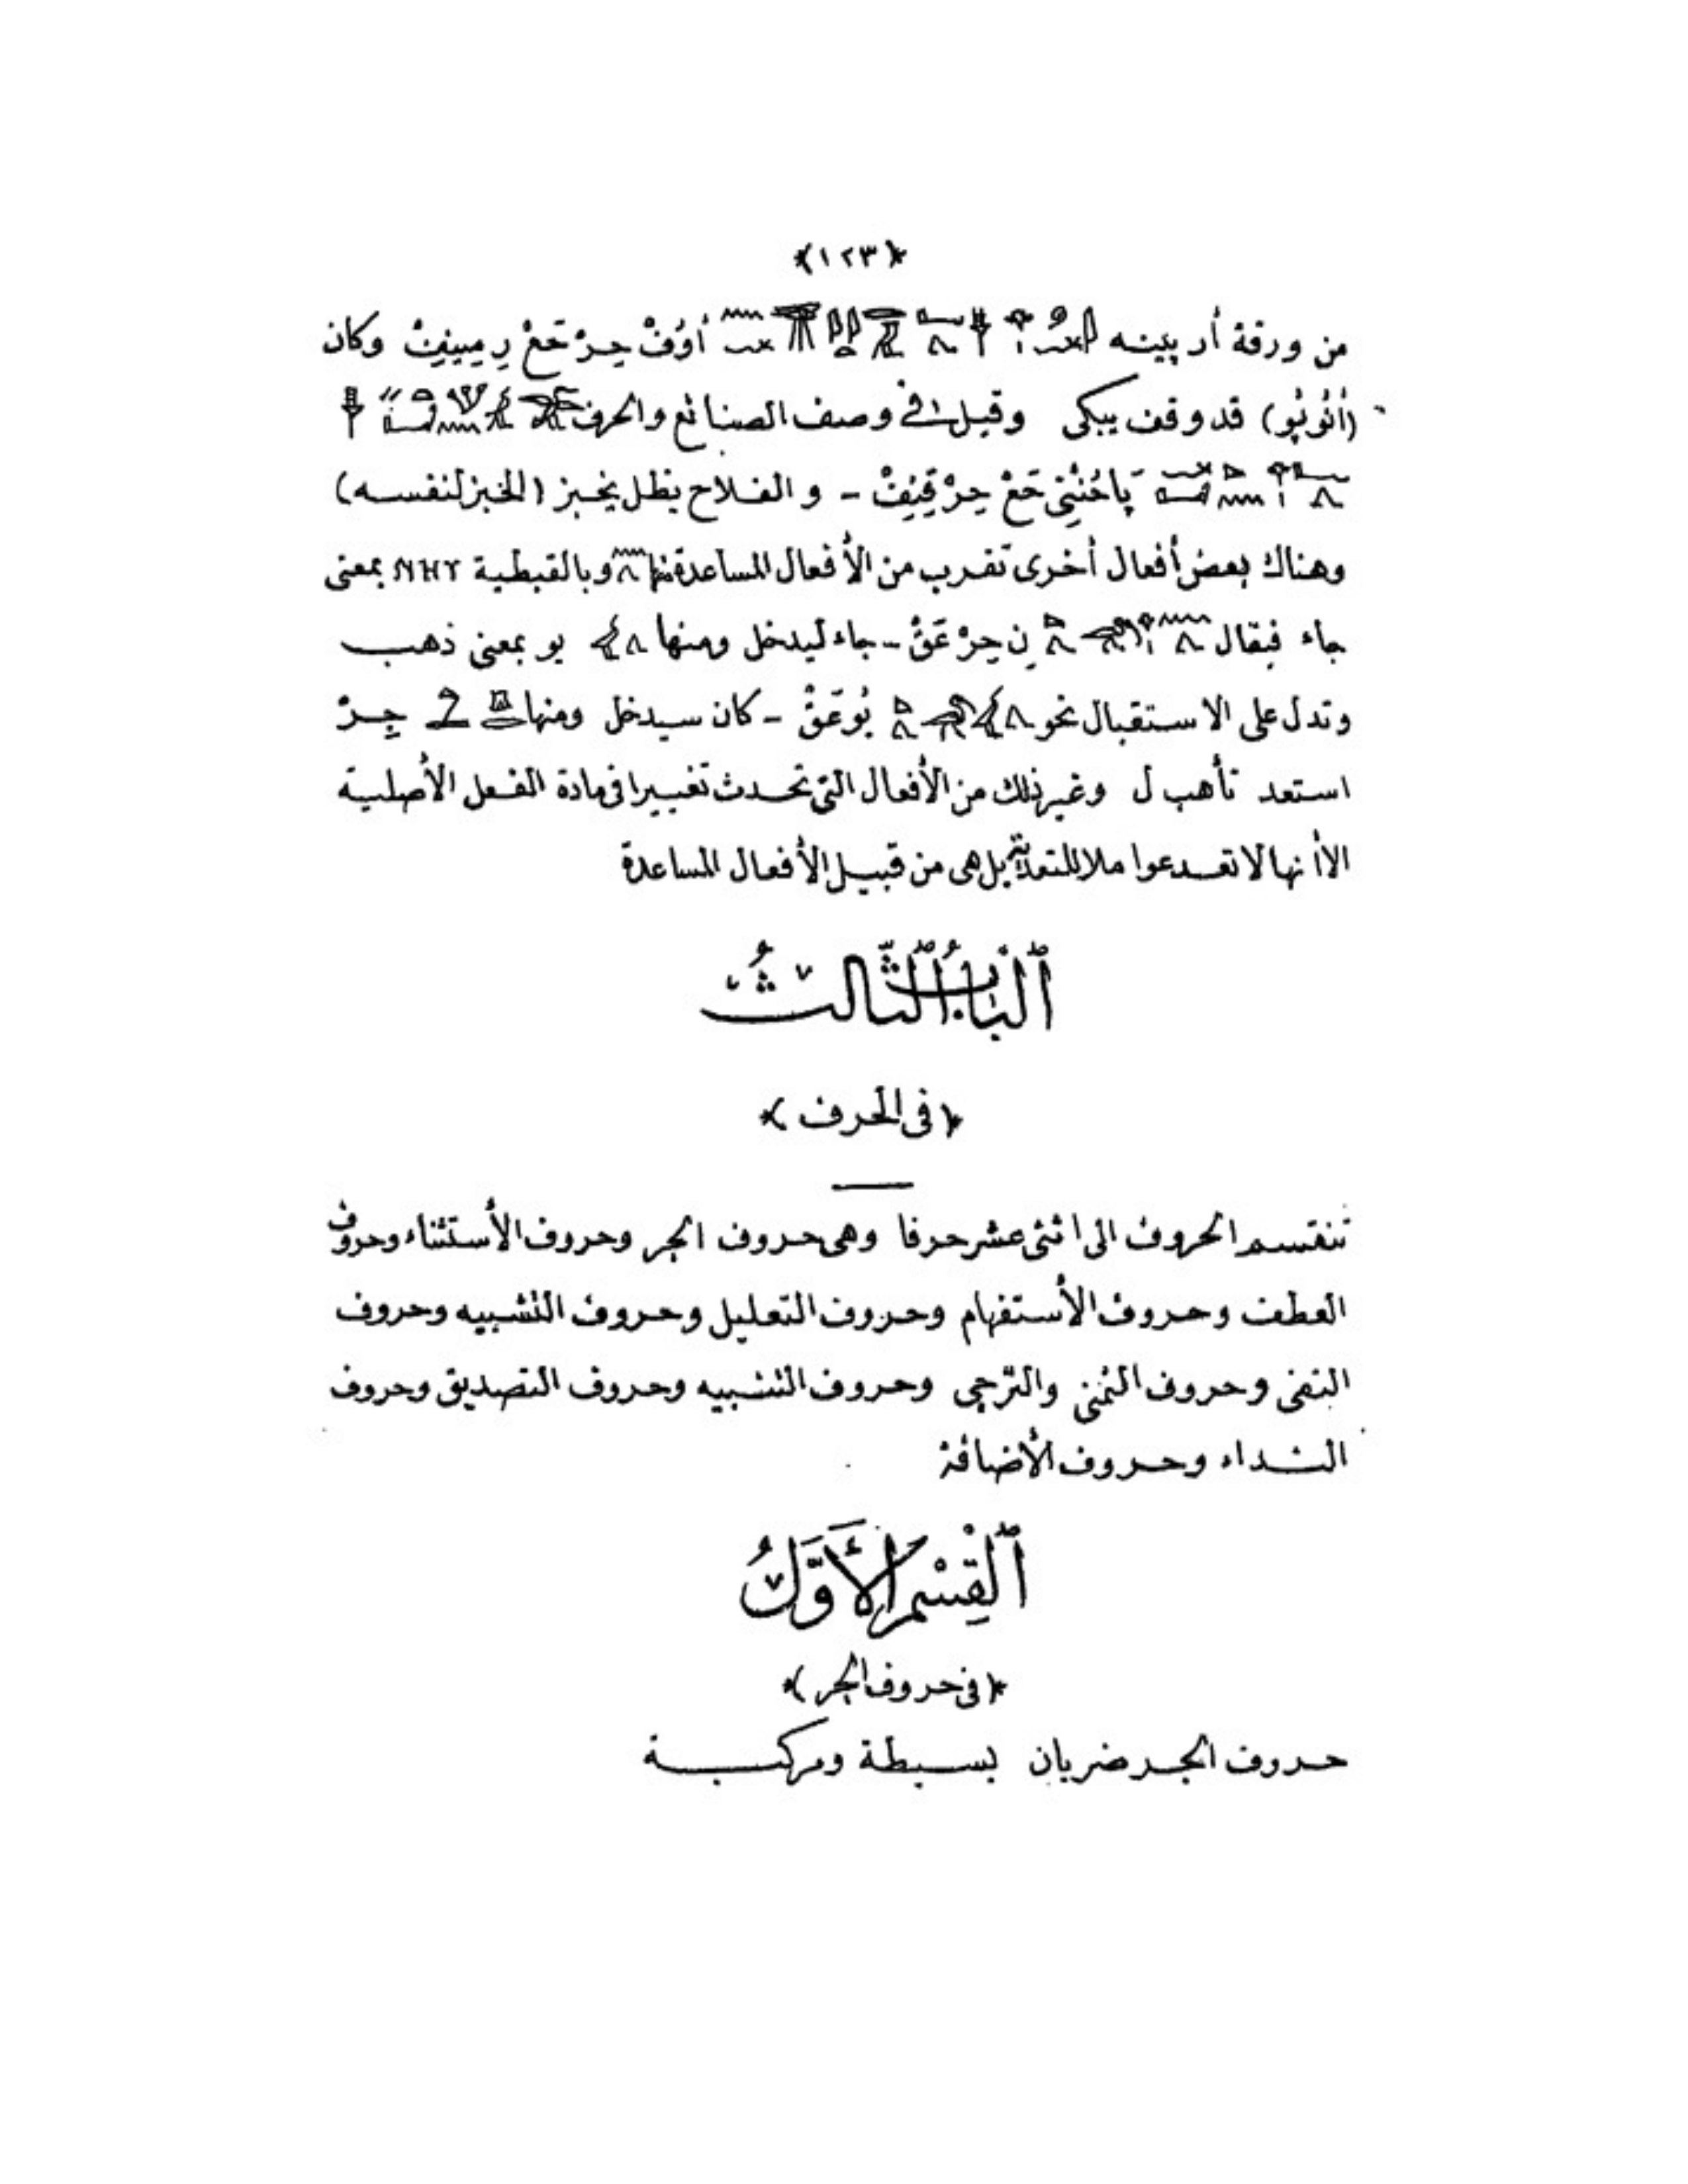 ﴿١٢٣﴾
من ورقة أربينه أوُفْ حِرْ حَعْ رِمِيفِتْ وكان
(أنُوبُو) قد وقف يبكى وقيل فى وصف الصنائع والحرف
پاخُنْتِى حَعْ حِرْ قِفِنْ - والفلاح يظل يخبز (الخبز لنفسه)
وهناك بعض أفعال أخرى تقرب من الأفعال المساعدة منها وبالقبطية ⲚⲎⲨ بمعنى
جاء فيقال نِ حِرْ عَقْ - جاء ليدخل ومنها يو بمعنى ذهب
وتدل على الاستقبال نحو يُوعَقْ - كان سيدخل ومنها جِرْ
استعد تأهب ل وغير ذلك من الأفعال التى تحدث تغييرا فى مادة الفعل الأصلية
الا أنها لا تعد عواملا للتعدية بل هى من قبيل الأفعال المساعدة
ٱلْبَابُ ٱلثَّالِثُ
﴿فى الحرف﴾
تنقسم الحروف الى اثنى عشر حرفا وهى حروف الجر وحروف الأستثناء وحروف
العطف وحروف الأستفهام وحروف التعليل وحروف التشبيه وحروف
النفى وحروف التمنى والترجى وحروف التشبيه وحروف التصديق وحروف
النداء وحروف الأضافة
ٱلْقِسْمُ ٱلْأَوَّلُ
﴿فى حروف الجر﴾
حروف الجر ضربان بسيطة ومركبة